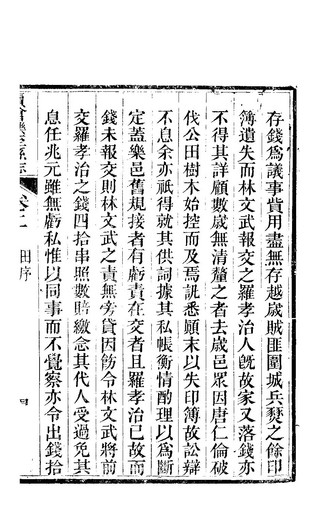 存錢爲議事貲用盡無存越歲賊匪圍城兵燹之餘印
簿遺失而林文武報交之羅孝治人旣故家又落錢亦
不得其詳顧數歲無淸釐之者去歲邑眾因唐仁倫破
伐公田樹木始控而及焉訊悉顚末以失印簿故訟辯
不息余亦祇得就其供詞據其私帳衡情酌理以爲斷
定蓋樂邑舊規接者有虧責在交者且羅孝治已故而
錢未報交則林文武之責無旁貸因飭令林文武將前
交羅孝治之錢四拾串照數賠繳念其代人受過免其
息任兆元雖無虧私惟以同事而不覺察亦令出錢拾
卷之二
田序
四